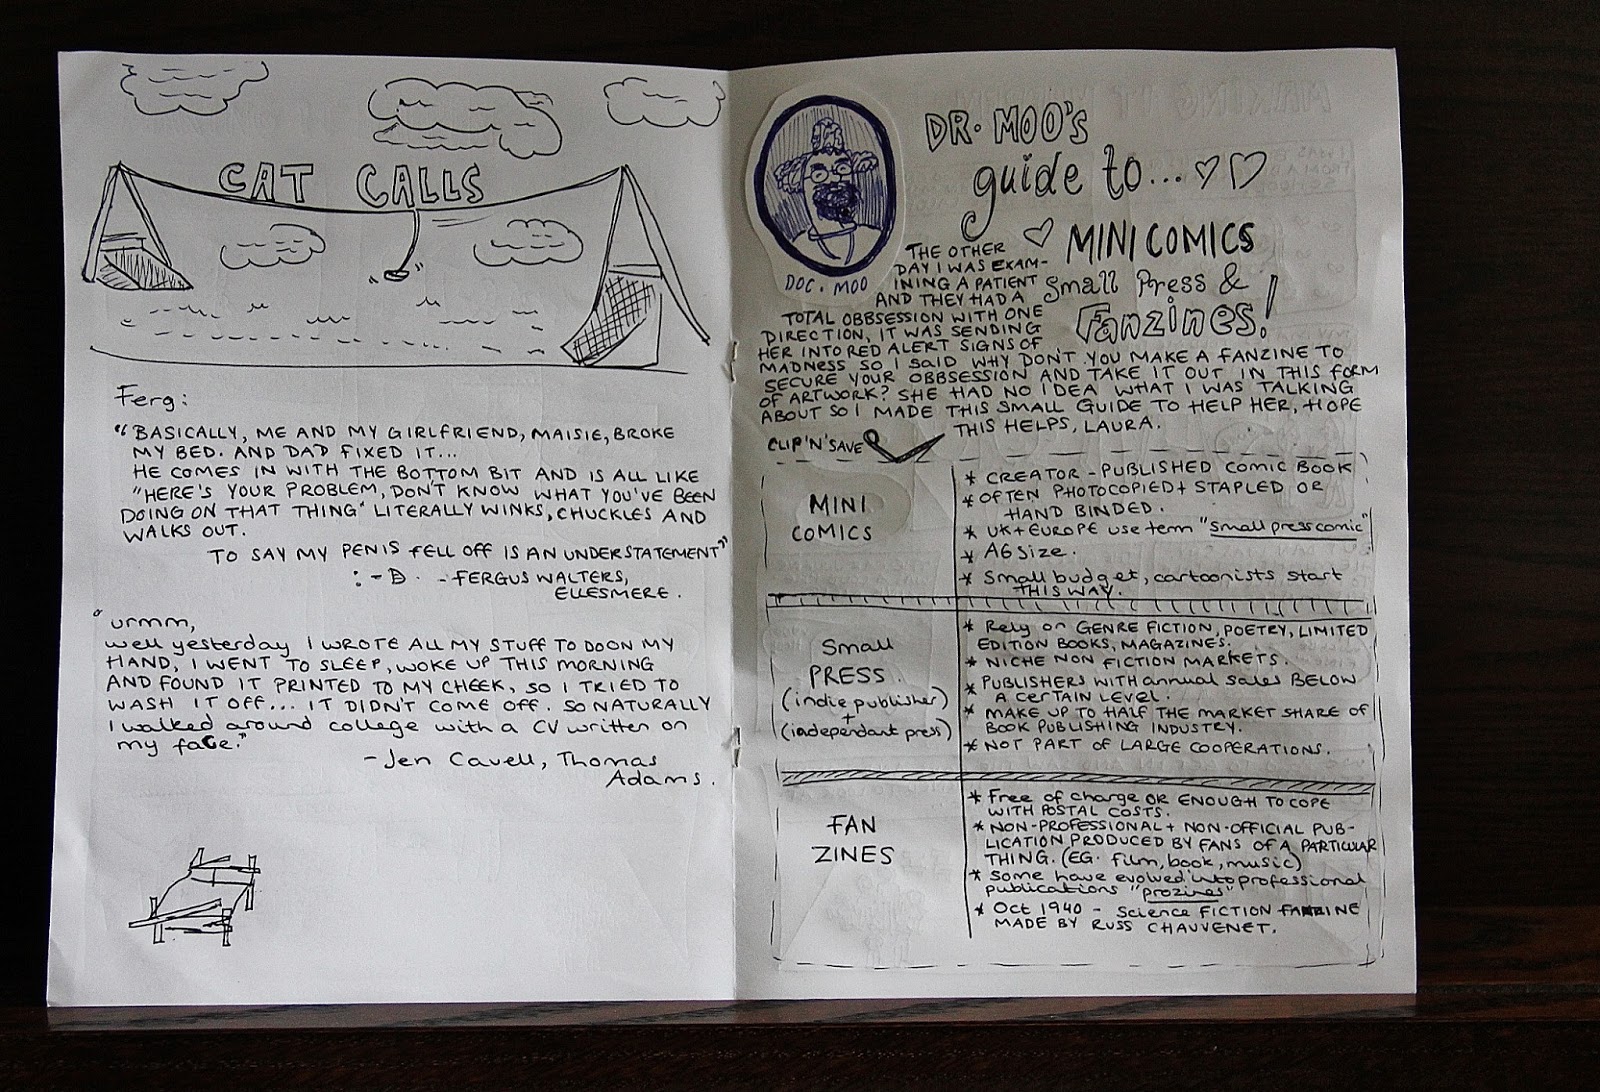 CAT CALLS
Ferg:
"BASICALLY, ME AND MY GIRLFRIEND, MAISIE, BROKE
MY BED. AND DAD FIXED IT...
HE COMES IN WITH THE BOTTOM BIT AND IS ALL LIKE
"HERE'S YOUR PROBLEM, DON'T KNOW WHAT YOU'VE BEEN
DOING ON THAT THING" LITERALLY WINKS, CHUCKLES AND
WALKS OUT.
TO SAY MY PENIS FELL OFF IS AN UNDERSTATEMENT"
:-B. - FERGUS WALTERS,
ELLESMERE.
"urmm,
well yesterday I WROTE ALL MY STUFF TO DO ON MY
HAND, I WENT TO SLEEP, WOKE UP THIS MORNING
AND FOUND IT PRINTED TO MY CHEEK, SO I TRIED TO
WASH IT OFF... IT DIDN'T COME OFF. SO NATURALLY
I walked around college with a CV written on
my face."
- Jen Cavell, Thomas
Adams.
DR. MOO'S
guide to...
MINI COMICS
Small Press &
Fanzines!
DOC. MOO
THE OTHER
DAY I WAS EXAM-
INING A PATIENT
AND THEY HAD A
TOTAL OBBSESSION WITH ONE
DIRECTION, IT WAS SENDING
HER INTO RED ALERT SIGNS OF
MADNESS SO I SAID WHY DON'T YOU MAKE A FANZINE TO
SECURE YOUR OBBSESSION AND TAKE IT OUT IN THIS FORM
OF ARTWORK? SHE HAD NO IDEA WHAT I WAS TALKING
ABOUT SO I MADE THIS SMALL GUIDE TO HELP HER, HOPE
THIS HELPS, LAURA.
CLIP 'N' SAVE
MINI
COMICS
* CREATOR - PUBLISHED COMIC BOOK
* OFTEN PHOTOCOPIED + STAPLED OR
HAND BINDED.
* UK + EUROPE use term "Small press comic"
* A6 Size.
* Small budget, cartoonists start
THIS WAY.
Small
PRESS.
(indie publisher)
+
(independant press)
* Rely on GENRE FICTION, POETRY, LIMITED
EDITION BOOKS, MAGAZINES.
* NICHE NON FICTION MARKETS.
* PUBLISHERS WITH annual sales BELOW
A certain LEVEL.
* MAKE UP TO HALF THE MARKET SHARE OF
BOOK PUBLISHING INDUSTRY.
* NOT PART OF LARGE COOPERATIONS.
FAN
ZINES
* Free of charge OR ENOUGH TO COPE
WITH POSTAL COSTS.
* NON-PROFESSIONAL + NON-OFFICIAL PUB-
LICATION PRODUCED BY FANS OF A PARTICULAR
THING. (EG. film, book, music)
* Some have evolved into professional
publications "prozines"
* Oct 1940 - Science FICTION FANZINE
MADE BY RUSS CHAUVENET.